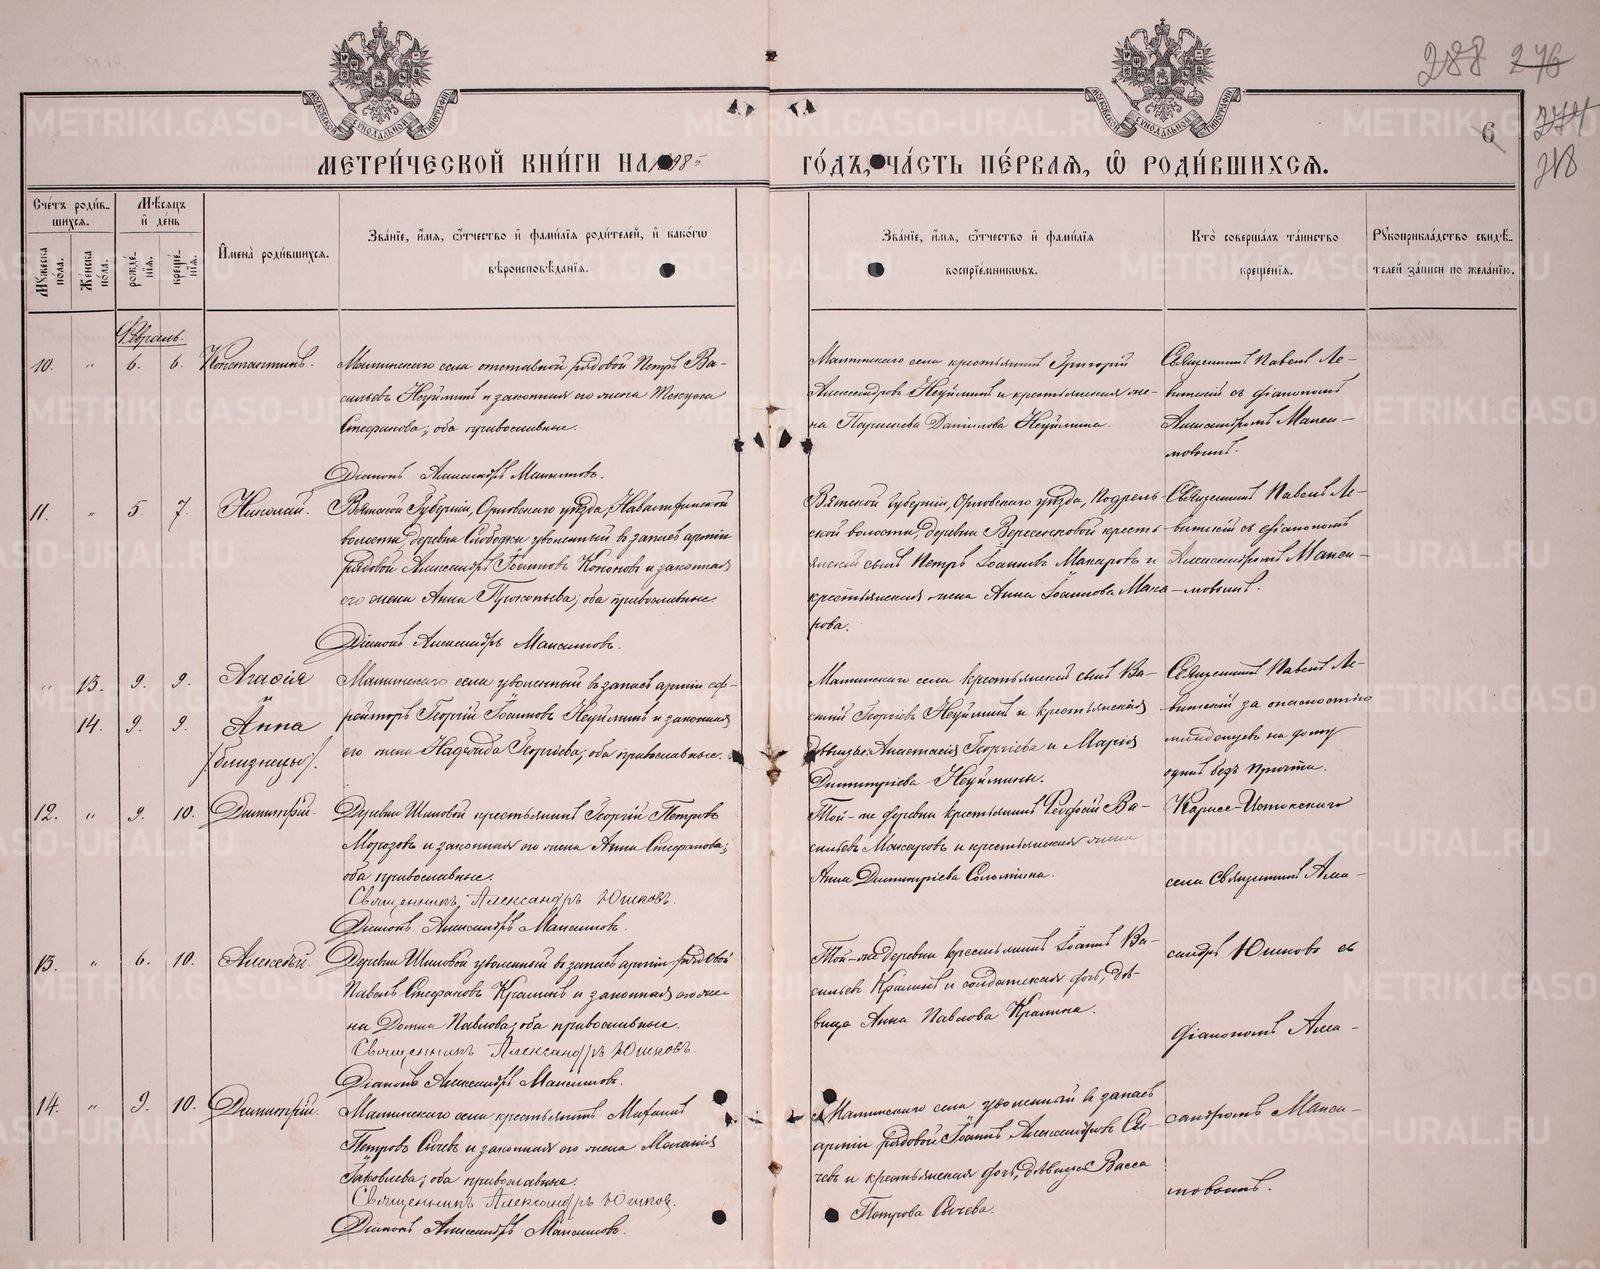 288 276
6 274
218
МОСКОВСКОЙ СѴНОДАЛЬНОЙ ТИПОГРАФІИ
МОСКОВСКОЙ СѴНОДАЛЬНОЙ ТИПОГРАФІИ
МЕТРИ́ЧЕСКОЙ КНИ́ГИ НА 1898
ГО́ДЪ, ЧА́СТЬ ПЕ́РВАѦ, Ѡ РОДИ́ВШИХСѦ.
Сче́тъ роди́в-
шихсѧ.
Мꙋ́жеска по́ла.
Же́нска по́ла.
Мѣ́сѧцъ
и҆ де́нь
рожде́-
нїѧ.
креще́-
нїѧ.
И҆мена̀ роди́вшихсѧ.
Зва́нїе, и҆́мѧ, ѻ҆́тчество и҆ фами́лїѧ роди́телей, и҆ како́гѡ
вѣроисповѣ́данїѧ.
Зва́нїе, и҆́мѧ, ѻ҆́тчество и҆ фами́лїѧ
воспрїе́мникѡвъ.
Кто̀ соверша́лъ та́инство
креще́нїѧ.
Рꙋкоприкла́дство свидѣ́-
телей за́писи по жела́нїю.
Февраль.
10. " 6. 6. Константинъ.
Маминскаго села отставной рядовой Петръ Ва-
сильевъ Неуйминъ и законная его жена Текуса
Стефанова; оба православные.
Діаконъ Александръ Максимовъ.
Маминскаго села крестьянинъ Григорій
Александровъ Неуйминъ и крестьянская же-
на Параскева Даніилова Неуймина.
Священникъ Павелъ Ле-
витскій съ діакономъ
Александромъ Макси-
мовымъ.
11. " 5. 7. Николай.
Вятской губерніи, Орловскаго уѣзда,
волости, деревни Слободки уволенный въ запасъ арміи
рядовой Александръ Іоанновъ Кононовъ и законная
его жена Анна Прокопьева; оба православные
Діаконъ Александръ Максимовъ.
Вятской губерніи, Орловскаго уѣзда, Подрель-
ской волости, деревни кресть-
янскій сынъ Петръ Іоанновъ Макаровъ и
крестьянская жена Анна Іоаннова Мака-
рова.
Священникъ Павелъ Ле-
витскій съ діакономъ
Александромъ Макси-
мовымъ.
" 13. 9. 9. Агаѳія
14. 9. 9. Анна
/близнецы/.
Маминскаго села уволенный въ запасъ арміи еф-
рейторъ Георгій Іоанновъ Неуйминъ и законная
его жена Надежда Георгіева; оба православные.
Маминскаго села крестьянскій сынъ Ва-
силій Георгіевъ Неуйминъ и крестьянскія
дѣвицы: Анастасія Георгіева и Марія
Димитріева Неуймины.
Священникъ Павелъ Ле-
витскій за опасностію
младенцевъ на дому
одинъ безъ причта.
12. " 9. 10. Димитрій.
Деревни Шиловой крестьянинъ Георгій Петровъ
Морозовъ и законная его жена Анна Стефанова;
оба православные.
Священникъ Александръ Юшковъ.
Діаконъ Александръ Максимовъ.
Той-же деревни крестьянинъ Ва-
сильевъ Макаровъ и крестьянская жена
Анна Димитріева Соломина.
Карисе-Истокскаго
села священникъ Алек-
13. " 6. 10. Алексѣй.
Деревни Шиловой уволенный въ запасъ арміи рядовой
Павелъ Стефановъ Крапинъ и законная его же-
на Домна Павлова; оба православные.
Священникъ Александръ Юшковъ.
Діаконъ Александръ Максимовъ.
Той-же деревни крестьянинъ Іоаннъ Ва-
сильевъ Крапинъ и солдатская дочь, дѣ-
вица Анна Павлова Крапина.
сандръ Юшковъ съ
діакономъ Алек-
14. " 9. 10. Димитрій.
Маминскаго села крестьянинъ Михаилъ
Петровъ Сычевъ и законная его жена Меланія
Іаковлева; оба православные.
Священникъ Александръ Юшков.
Діаконъ Александръ Максимовъ.
Маминскаго села уволенный въ запасъ
арміи рядовой Іоаннъ Александровъ Сы-
чевъ и крестьянская дочь, дѣвица Васса
Петрова Сычева.
сандромъ Макси-
мовымъ.
METRIKI.GASO-URAL.RU